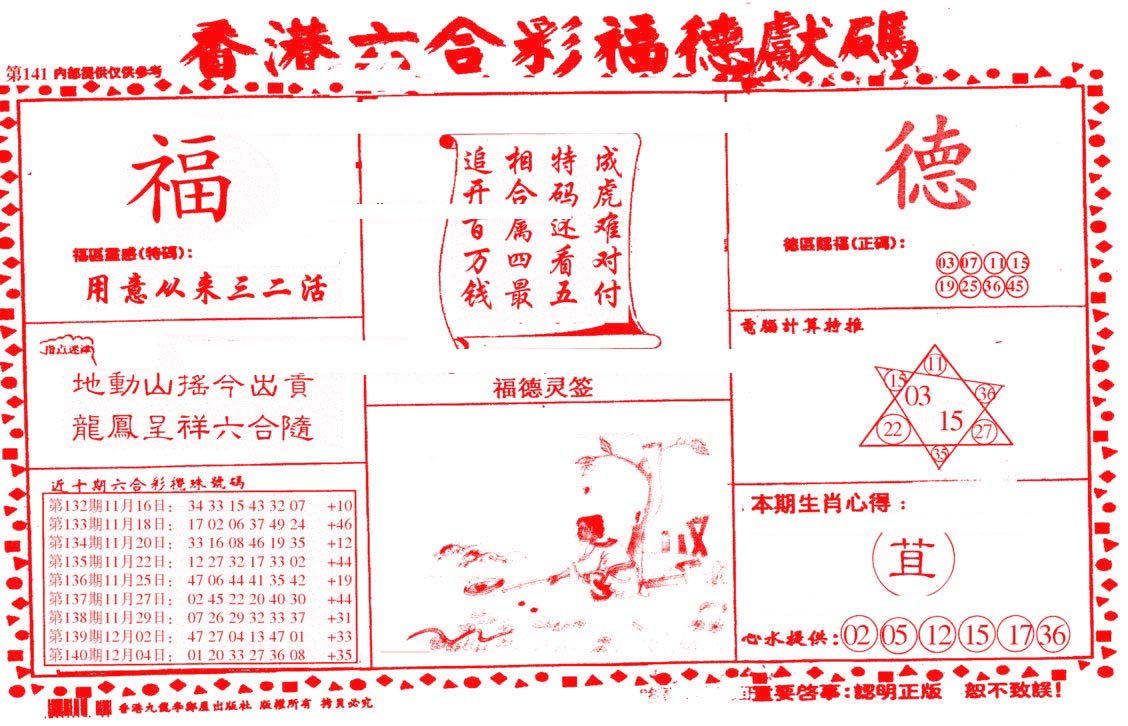 香港六合彩福德獻碼
第141 内部提供仅供參考
福
福區靈感(特碼):
用意从来三二活
指点迷津
地動山搖今出賣
龍鳳呈祥六合隨
近十期六合彩攪珠號碼
第132期11月16日: 34 33 15 43 32 07 +10
第133期11月18日: 17 02 06 37 49 24 +46
第134期11月20日: 33 16 08 46 19 35 +12
第135期11月22日: 12 27 32 17 33 02 +44
第136期11月25日: 47 06 44 41 35 42 +19
第137期11月27日: 02 45 22 20 40 30 +44
第138期11月29日: 07 26 29 32 33 37 +31
第139期12月02日: 47 27 04 13 47 01 +33
第140期12月04日: 01 20 33 27 36 08 +35
成虎难对付
特码还看五
相合属四最
追开百万钱
福德灵签
德
德區賜福(正碼):
03 07 11 15
19 25 36 45
電腦計算特推
11
15 03 36
22 15 27
35
本期生肖心得:
苴
心水提供: 02 05 12 15 17 36
重要启事:認明正版 恕不致誤!
版權所有 拷貝必究